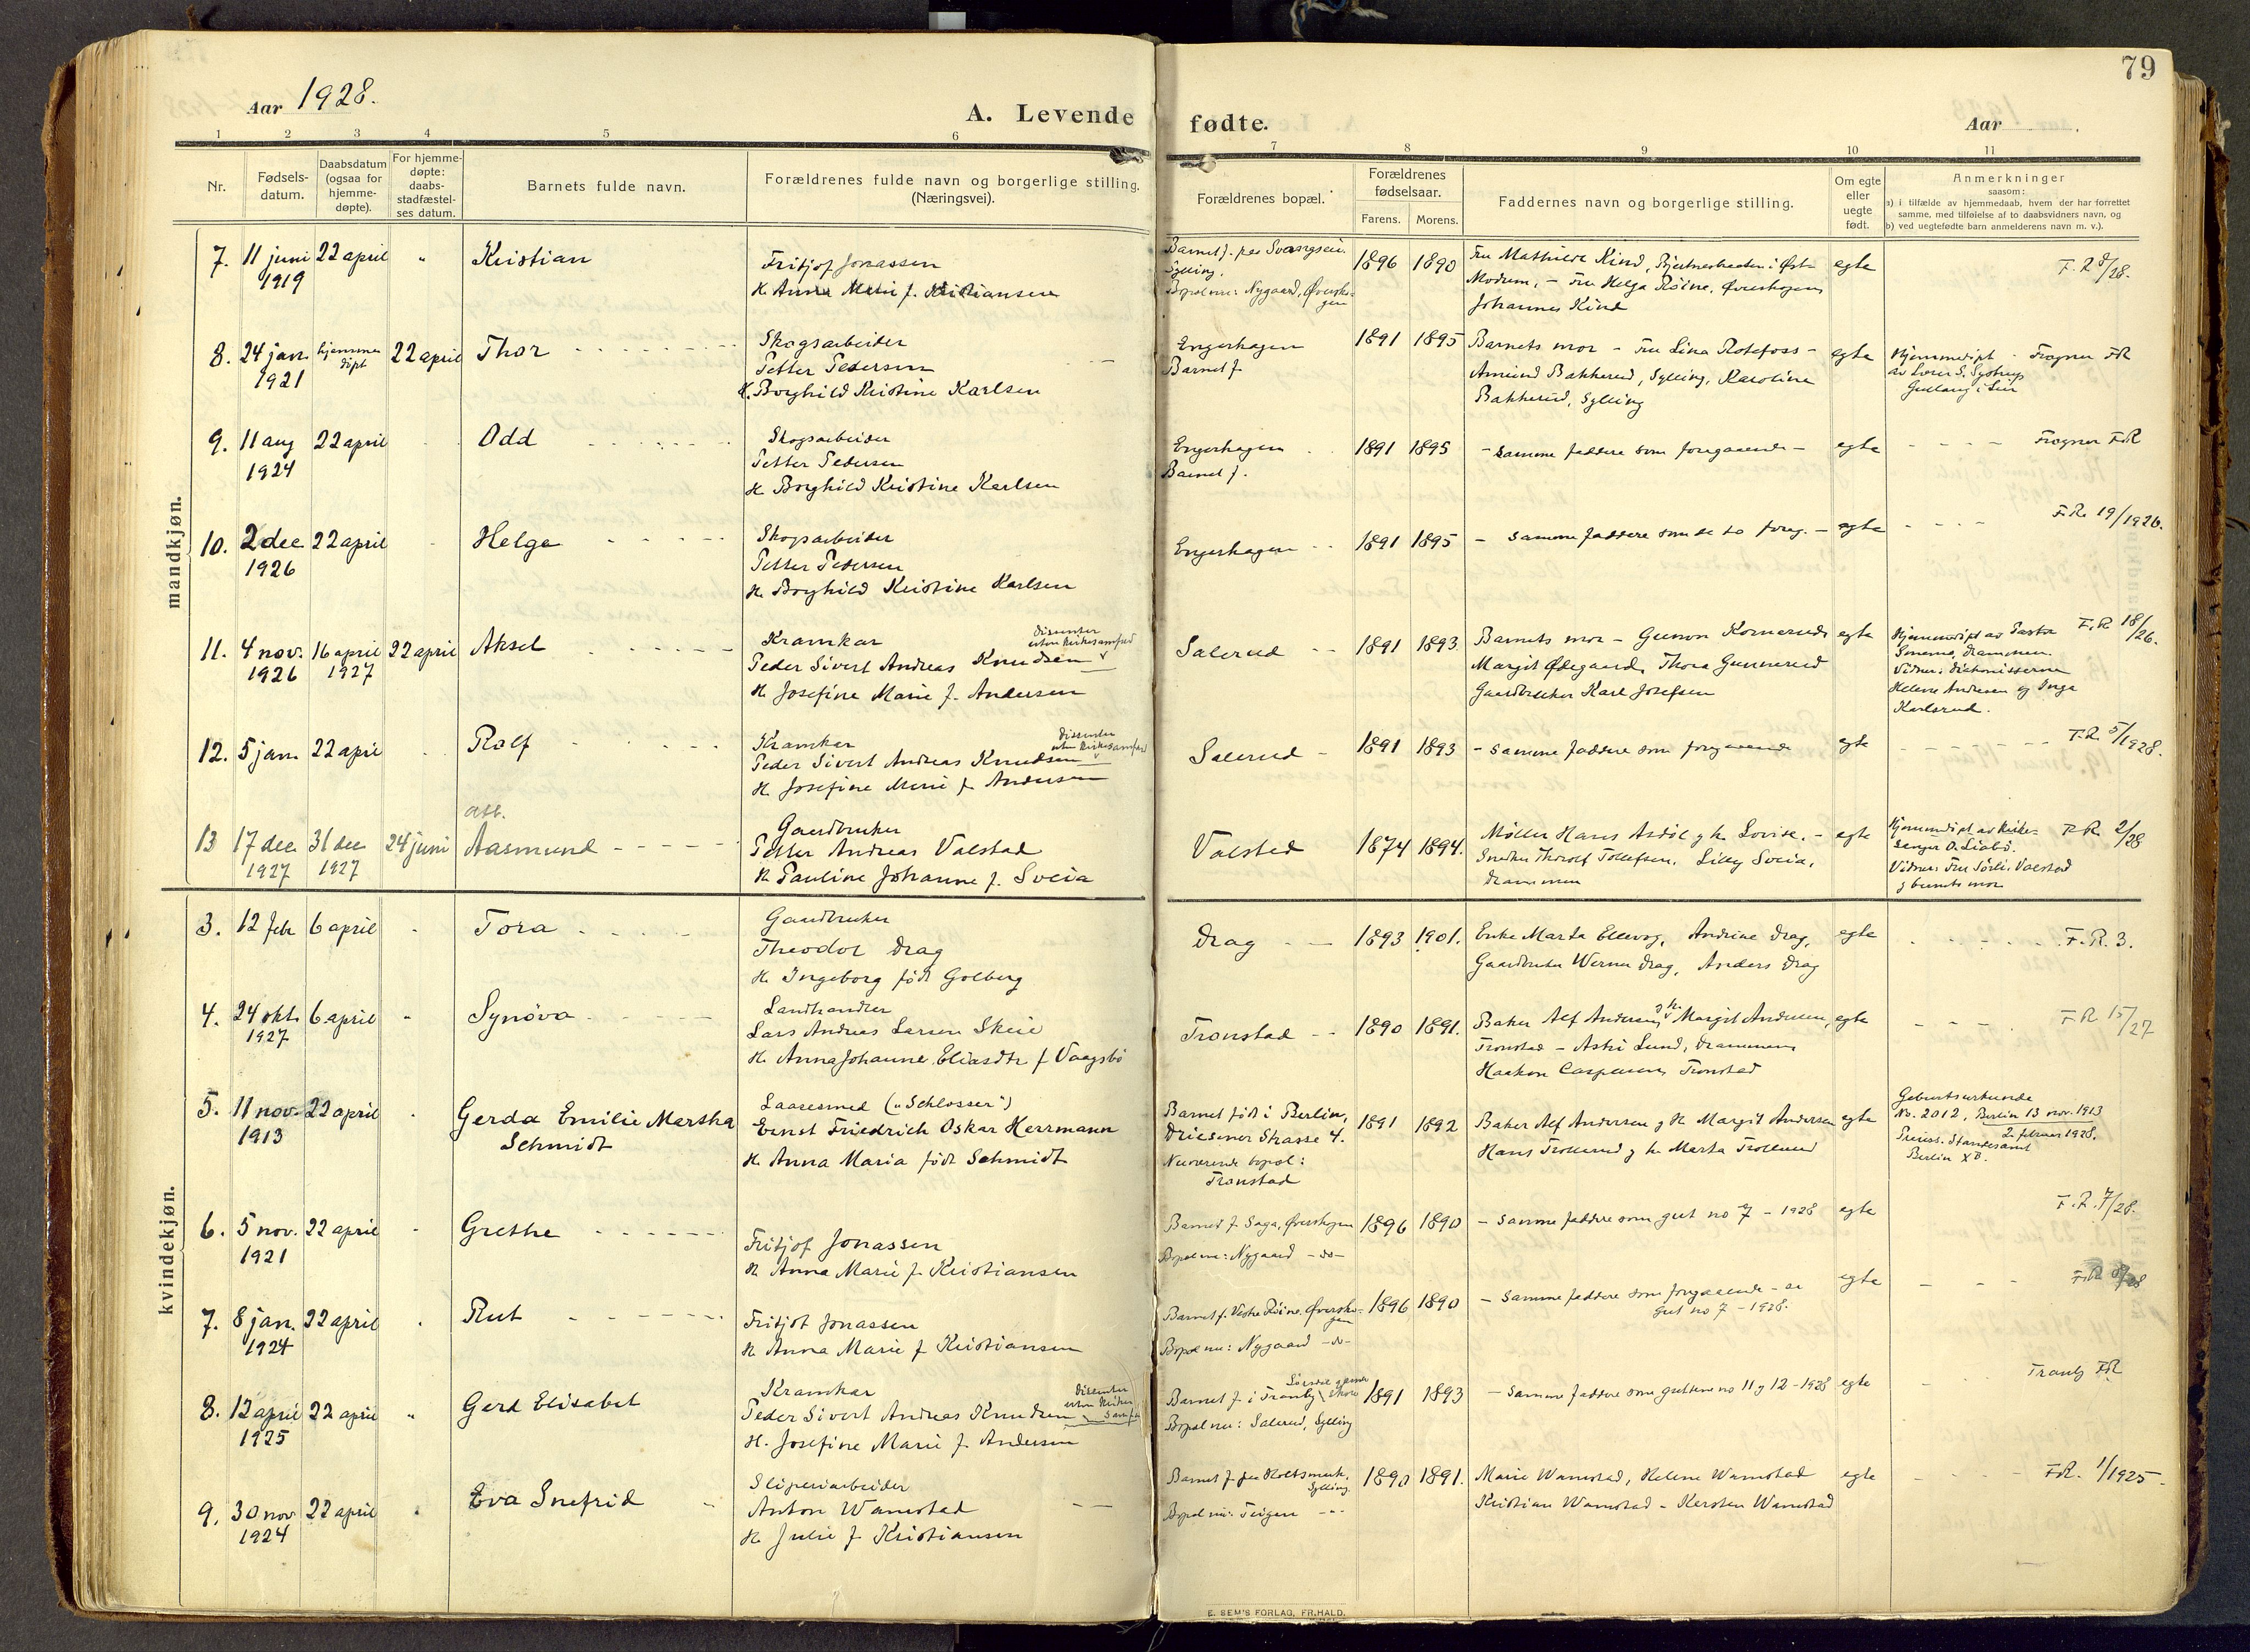 79
Aar 1928.
A. Levende fødte.
Aar
1 2 3 4 5 6 7 8 9 10 11
Nr.
Fødsels-
datum.
Daabsdatum
(ogsaa for
hjemme-
døpte).
For hjemme-
døpte:
daabs-
stadfæstel-
ses datum.
Barnets fulde navn.
Forældrenes fulde navn og borgerlige stilling.
(Næringsvei).
Forældrenes bopæl.
Forældrenes
fødselsaar.
Farens. Morens.
Faddernes navn og borgerlige stilling.
Om egte
eller
uegte
født.
Anmerkninger
saasom:
a) i tilfælde av hjemmedaab, hvem der har forrettet
samme, med tilføielse af to daabsvidners navn, og
b) ved uegtefødte barn anmelderens navn m. v.).
mandkjøn.
7. 11 juni 22 april " Kristian
1919
Fritjof Jonassen
H. Anna Marie f. Kristiansen
Barnet f. paa
Sylling.
Bopæl nu: Nygaard, Øversko-
gen
1896 1890
Fru Mathilde Kind, i Øst-
Modum, – Fru Helga Røine, Øverskogen
Johannes Kind
egte
F. R 8/28.
8. 24 jan. hjemme 22 april Thor
1921 døpt
Skogsarbeider
Petter Pedersen
H. Borghild Kristine Karlsen
Engerhagen
Barnet f.
1891 1895
Barnets mor – Fru Lina Rotefoss –
Amund Bakkerud, Sylling, Karoline
Bakkerud, Sylling
egte
Hjemmedøpt
av
i Lier
Frogner FR
9. 11 aug 22 april Odd
1924
Skogsarbeider
Petter Pedersen
H. Borghild Kristine Karlsen
Engerhagen
Barnet f.
1891 1895
– samme faddere som foregaaende –
egte
Frogner FR
10. 2 dec 22 april Helge
1926
Skogsarbeider
Petter Pedersen
H. Borghild Kristine Karlsen
Engerhagen
1891 1895
– samme faddere som de to foreg. –
egte
F. R. 19/1926.
11. 4 nov. 16 april 22 april Aksel
1926 1927
Kramkar
dissenter
uten kirkesamfund
Peder Sivert Andreas Knudsen
H. Josefine Marie f. Andersen
Salerud
1891 1893
Barnets mor – Gunvor Kornerud
Margit Ødegaard, Thora Gunnerud
Gaardbruker Karl Josefsen
egte
Hjemmedøpt av Pastor
Drammen.
Vidner: diakonisserne
Helene Andresen og Inga
Karlsrud.
F. R 18/26.
12. 5 jan. 22 april Rolf
Kramkar
dissenter
uten kirkesamfund
Peder Sivert Andreas Knudsen
H. Josefine Marie f. Andersen
Salerud
1891 1893
– samme faddere som foregaaende
egte
F.R. 5/1928.
att.
13 17 dec 31 dec 24 juni Aasmund
1927 1927
Gaardbruker
Petter Andreas Valstad
H. Pauline Johanne f. Sveia
Valstad
1874 1894.
Møller Hans Asdøl og h. Lovise. –
Snedker Thorolf Tollefsen, Lilly Sveia,
Drammen
egte
Hjemmedøpt av kirke-
sanger O. Liabø.
Vidner: Fru Sørli, Valstad
og barnets mor
F R 2/28
kvindekjøn.
3. 12 febr 6 april Tora
Gaardbruker
Theodor Drag
H. Ingeborg født Golberg
Drag
1893 1901.
Enke Marta Ellevog, Andrine Drag,
Gaardbruker Werner Drag, Anders Drag
egte
F. R. 3.
4. 24 okt. 6 april " Synøva
1927
Landhandler
Lars Andreas Larsen Skeie
H. Anna Johanne Eliasdtr f. Vaagsbø
Tronstad
1890 1891.
Baker Alf Andersen og h. Margit Andersen,
Tronstad – Astri Lund, Drammen
Haakon Caspersen, Tronstad
egte
F R 15/27
5. 11 nov. 22 april Gerda Emilie Martha
1913 Schmidt
Laasesmed („Schlosser")
Ernst Friedrich Oskar Herrmann
H. Anna Maria født Schmidt
Barnet født i Berlin,
Driesener Strasse 4.
Nuværende bopæl:
Tronstad
1891 1892
Baker Alf Andersen og h. Margit Andersen
Hans Trollerud og h. Marta Trollerud
egte
Geburtsurkunde
No. 2012, Berlin 13 nov. 1913
2. februar 1928.
Preuss. Standesamt
Berlin X B.
6. 5 nov. 22 april Grethe
1921
Fritjof Jonassen
H. Anna Marie f. Kristiansen
Barnet f. Saga, Øverskogen
Bopæl nu: Nygaard – do –
1896 1890
– samme faddere som gut no 7 – 1928
egte
F. R. 7/28.
7. 8 jan. 22 april Rut
1924
Fritjof Jonassen
H. Anna Marie f. Kristiansen
Barnet f. Vestre Røine, Øversko-
gen
Bopæl nu: Nygaard – do –
1896 1890
– samme faddere som foregaaende – se
gut no 7 – 1928.
egte
F.R 8/28
8. 12 april 22 april " Gerd Elisabet
1925
Kramkar
dissenter
uten kirke-
samf.
Peder Sivert Andreas Knudsen
H. Josefine Marie f. Andersen
Barnet f. i Tranby
Bopæl nu: Salerud, Sylling
1891 1893
– samme faddere som guttene no 11 og 12 – 1928
egte
Tranby FR
9. 30 nov 22 april Eva Snefrid
1924
Sliperiarbeider
Anton Wamstad
H. Julie f. Kristiansen
Barnet f. paa Holtsmark,
Sylling
Bopæl nu: Teigen
1890 1891.
Marie Wamstad, Helene Wamstad
Kristian Wamstad – Karsten Wamstad
egte
F.R. 1/1925.
E. SEM'S FORLAG, FR.HALD.